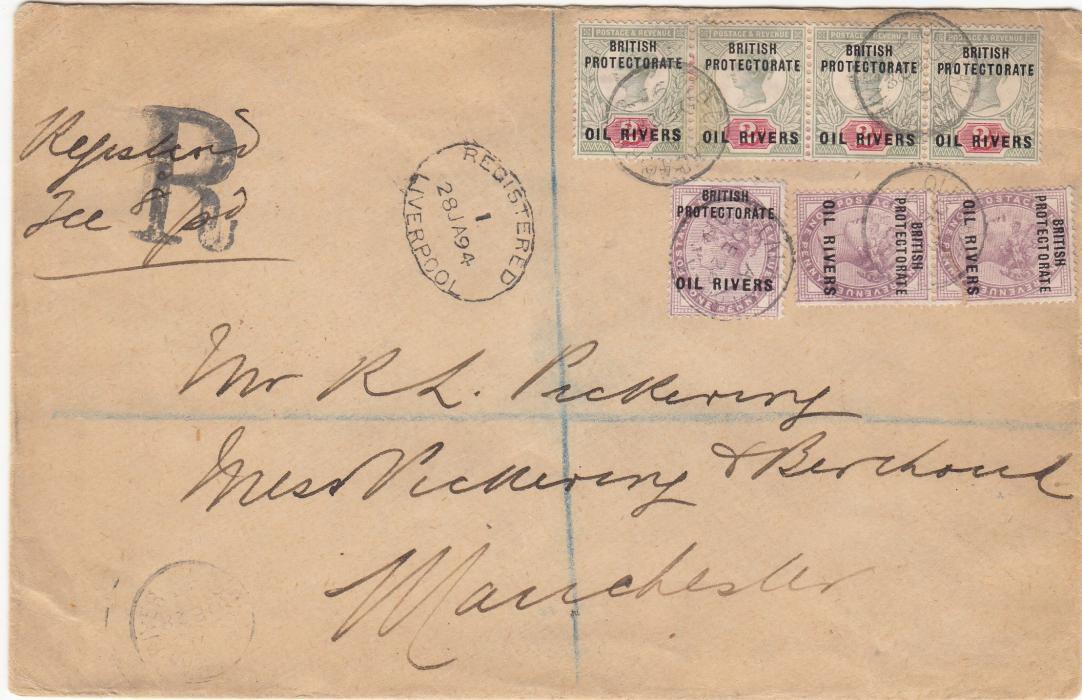 POSTAGE & REVENUE POSTAGE & REVENUE POSTAGE & REVENUE POSTAGE & REVENUE
BRITISH BRITISH BRITISH BRITISH
PROTECTORATE PROTECTORATE PROTECTORATE PROTECTORATE
OIL RIVERS OIL RIVERS OIL RIVERS OIL RIVERS
BRITISH
PROTECTORATE
OIL RIVERS
ONE PENNY
OIL RIVERS
BRITISH
PROTECTORATE
OIL RIVERS
BRITISH
PROTECTORATE
Registered
Fee pd
R
REGISTERED
1
28JA94
LIVERPOOL
Mr R L. Pickering
Mess Pickering & Berthoud
Manchester